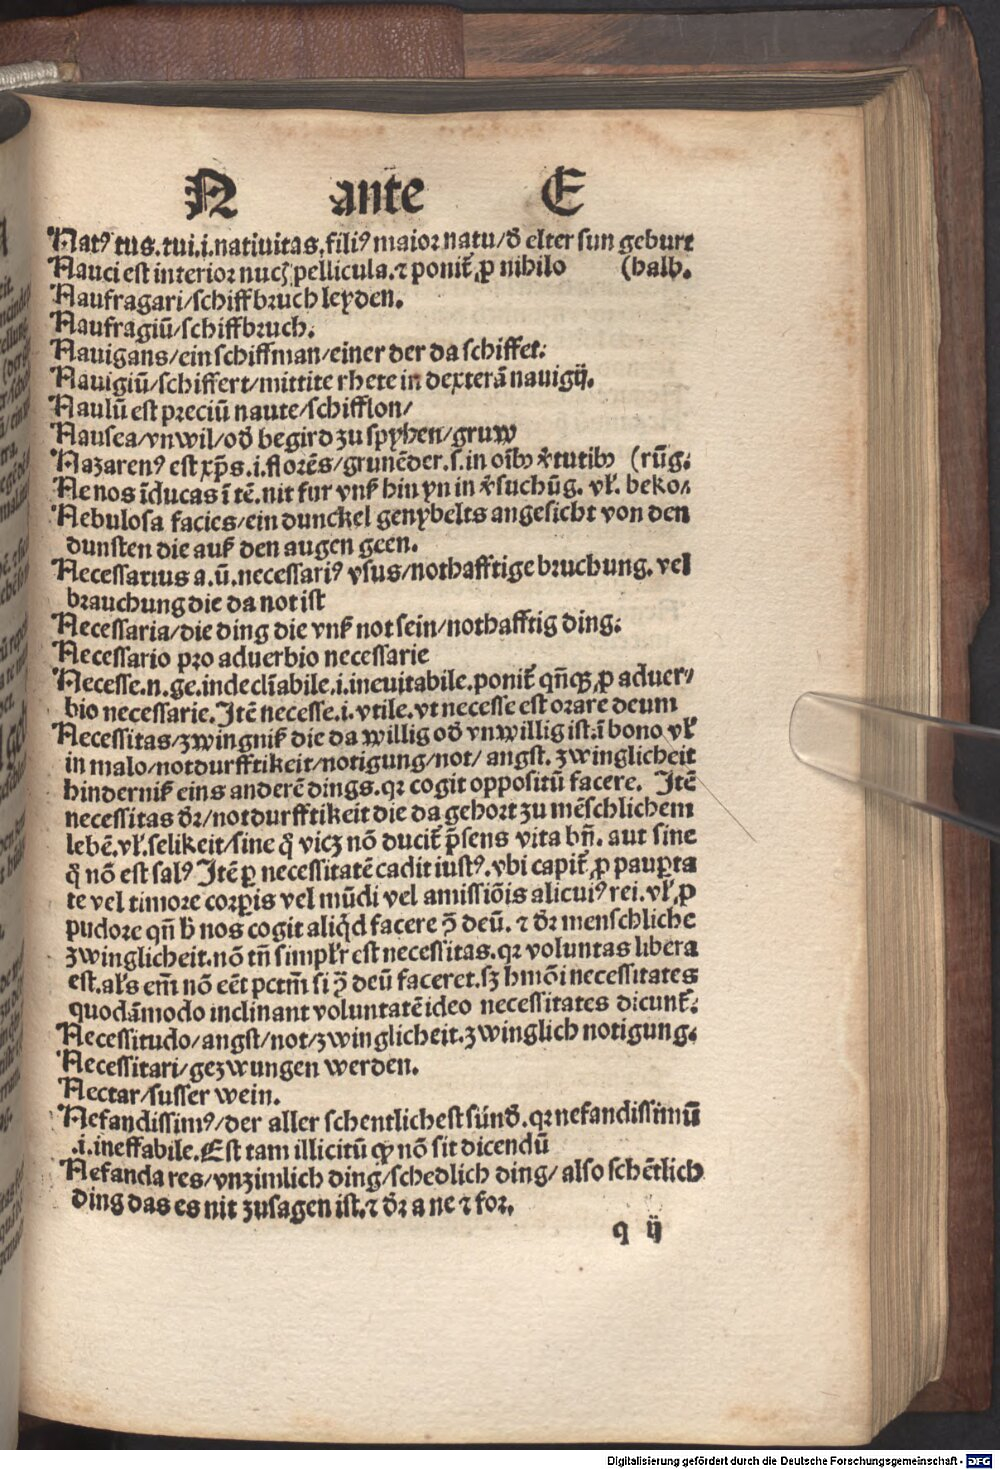 N ante E
Natꝰ tus. tui. i. natiuitas. filiꝰ maior natu/ď elter sun geburt
Nauci est interior nucꝫ pellicula. ⁊ ponit᷑ ꝓ nihilo (halb.
Naufragari/schiffbruch leyden.
Naufragiū/schiffbruch.
Nauigans/ein schiffman/einer der da schiffet:
Nauigiū/schiffert/mittite rhete in dexterā nauigij.
Naulū est preciū naute/schifflon/
Nausea/vnwil/oď begird zu spyhen/gruw
Nazarenꝰ est xp̄s. i. florēs/grunēder. s. in oīb⁹ v̾tutib⁹ (rūg:
Ne nos īducas ī tē. nit fur vnß hin yn in v̾suchūg. vł. beko⸗
Nebulosa facies/ein dunckel genybelts angesicht von den
dunsten die auß den augen geen.
Necessarius a. ū. necessariꝰ vsus/nothafftige bruchung. vel
brauchung die da not ist
Necessaria/die ding die vnß not sein/nothafftig ding:
Necessario pro aduerbio necessarie
Necesse. n. ge. indeclīabile. i. ineuitabile. ponit᷑ qn̄qꝫ ꝓ aduer⸗
bio necessarie. Itē necesse. i. vtile. vt necesse est orare deum
Necessitas/zwingniß die da willig oď vnwillig ist. ī bono vł
in malo/notdurfftikeit/notigung/not/ angst. zwinglicheit
hinderniß eins anderē dings. qꝛ cogit oppositū facere. Itē
necessitas dꝛ̄/notdurfftikeit die da gehort zu mēschlichem
lebē. vł. selikeit/sine q̄ vicꝫ nō ducit᷑ p̄sens vita hn̄. aut sine
q̄ nō est salꝰ Itē ꝑ necessitatē cadit iustꝰ. vbi capit᷑ ꝓ pauꝑta
te vel timore corꝑis vel mūdi vel amissiōis alicuiꝰ rei. vł ꝓ
pudore qn̄ h̄ nos cogit aliq̇d facere ꝯ̄ deū. ⁊ dꝛ̄ menschliche
zwinglicheit. nō tn̄ simpłr est necessitas. qꝛ voluntas libera
est. ałs em̄ nō eēt pctm̄ si ꝯ̄ deū faceret. sꝫ hmōi necessitates
quodāmodo inclinant voluntatē ideo necessitates dicunt᷑:
Necessitudo/angst/not/zwinglicheit. zwinglich notigung:
Necessitari/gezwungen werden.
Nectar/susser wein.
Nefandissimꝰ/der aller schentlichest sünď. qꝛ nefandissimū
.i. ineffabile. Est tam illicitū ꝙ nō sit dicendū
Nefanda res/vnzimlich ding/schedlich ding/ also schētlich
ding das es nit zusagen ist. ⁊ dꝛ̄ a ne ⁊ for.
q ij
Digitalisierung gefördert durch die Deutsche Forschungsgemeinschaft - DFG